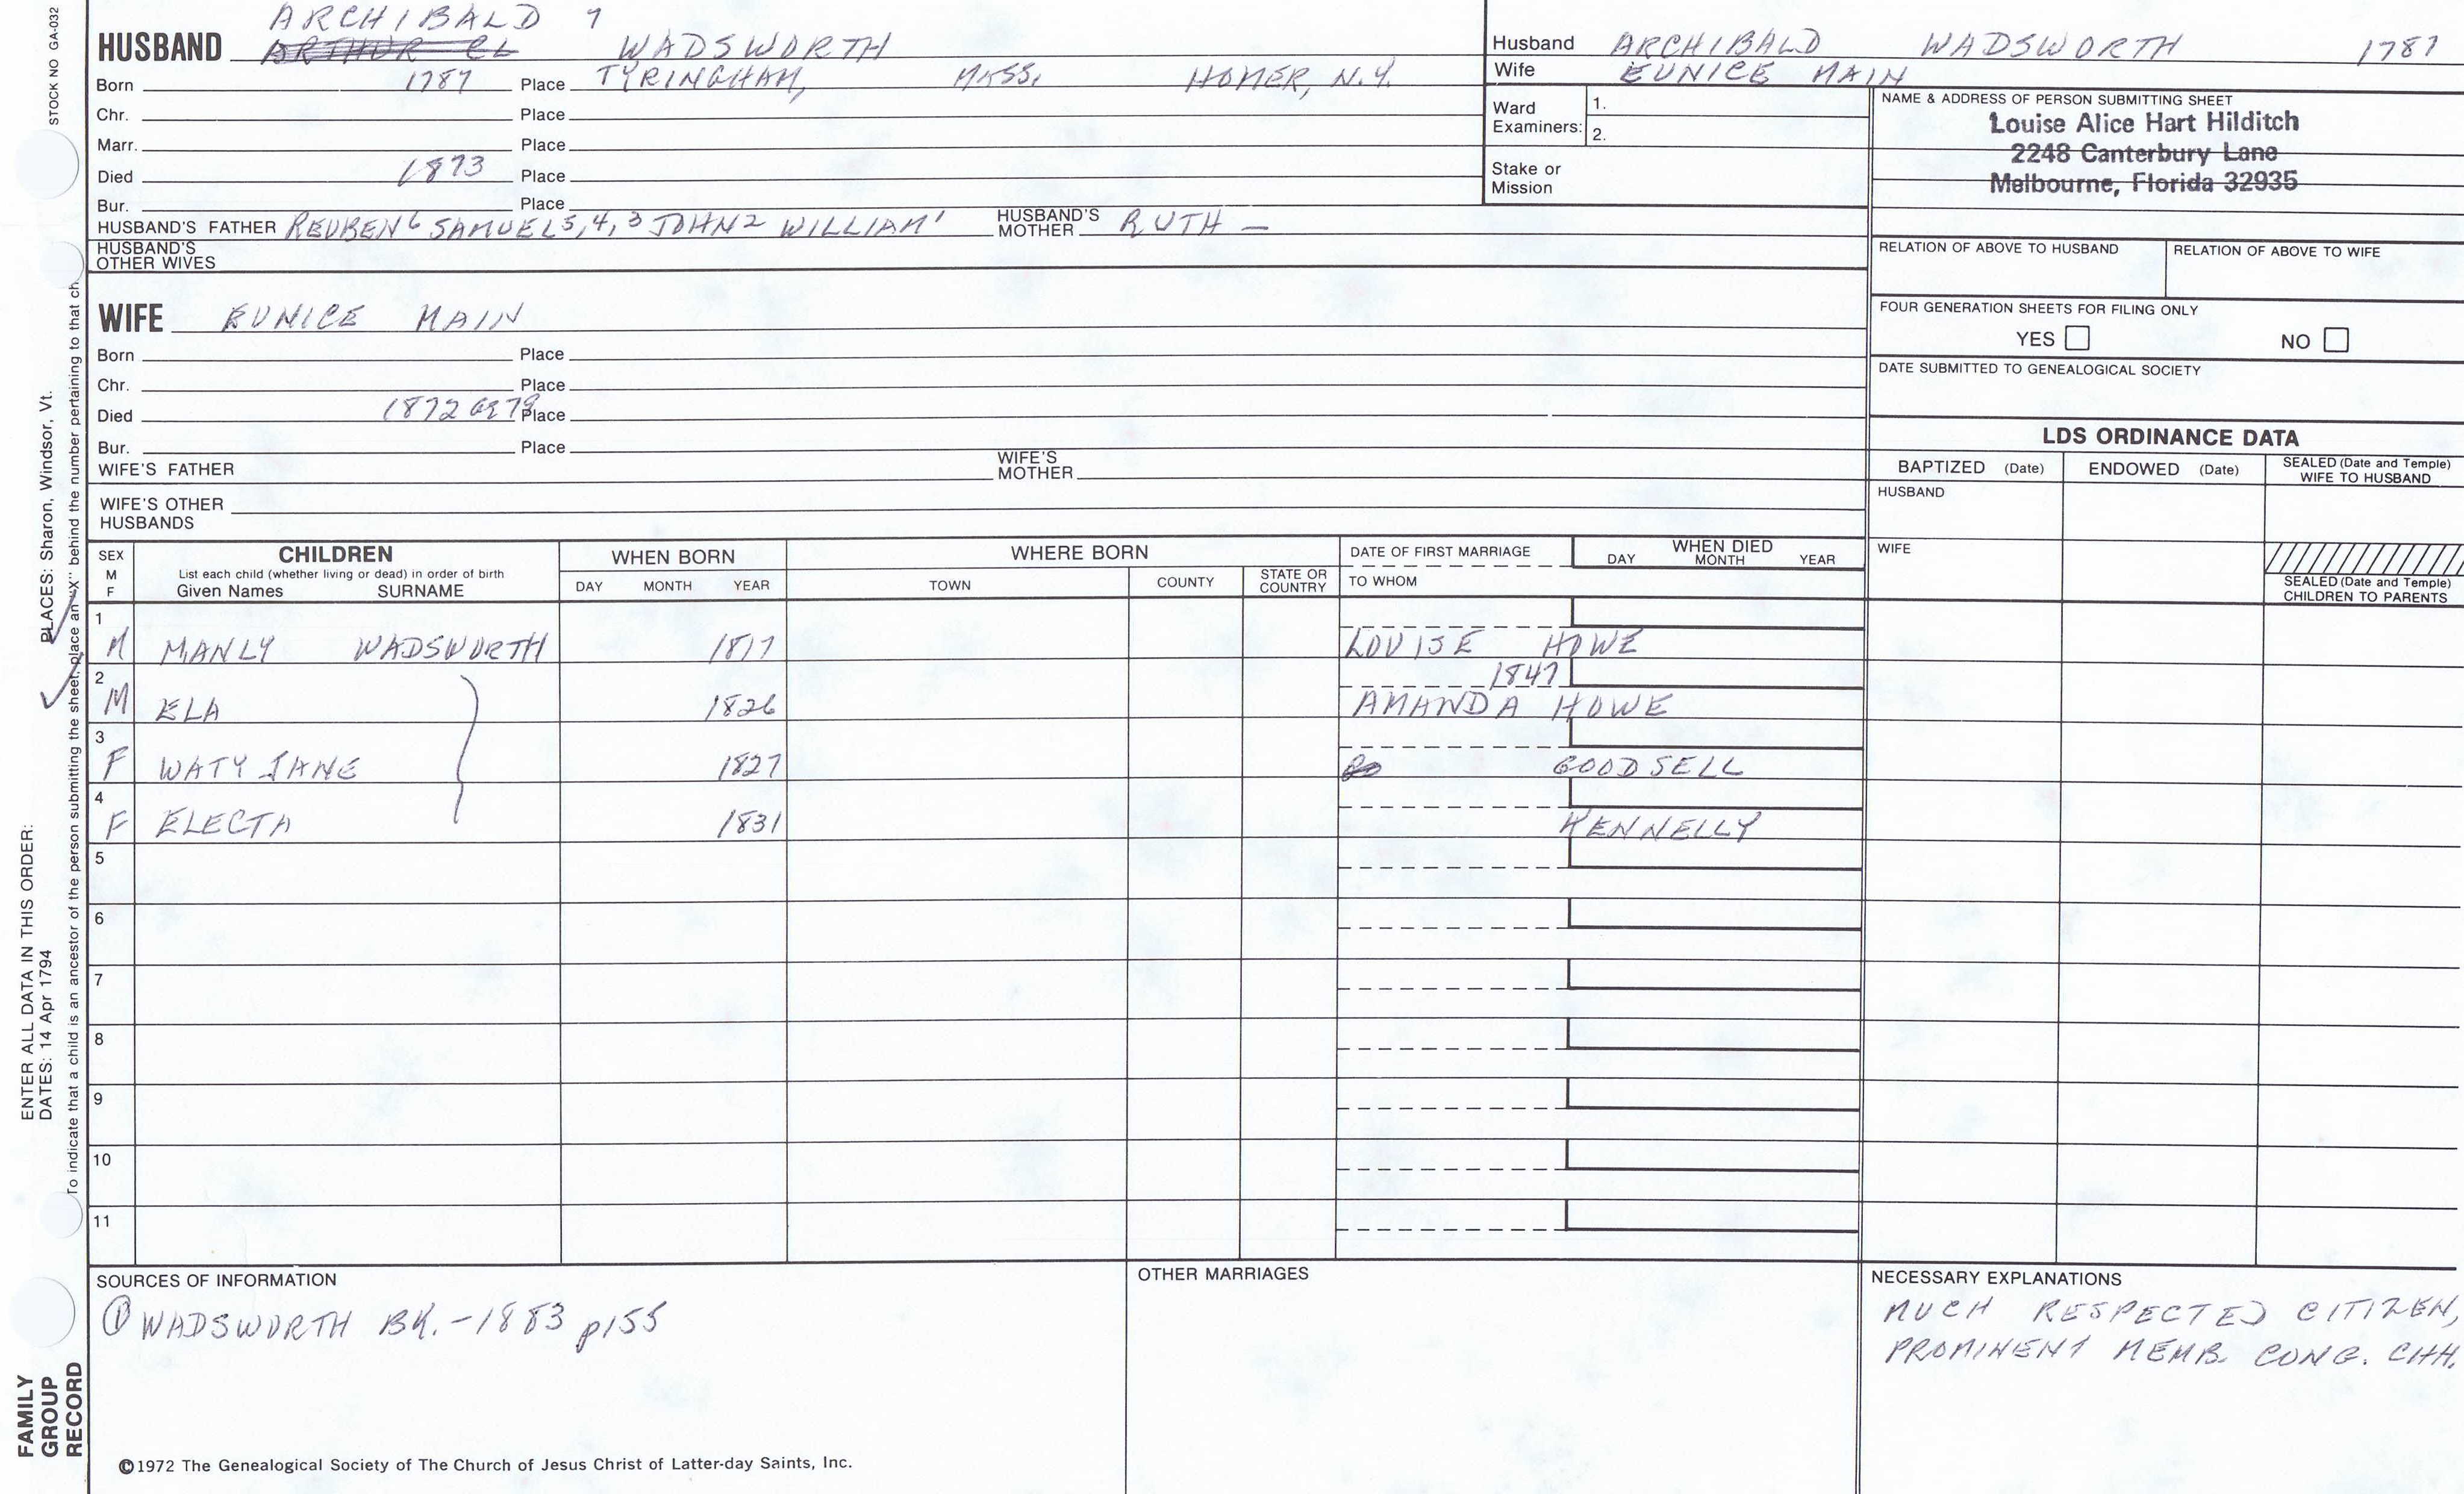 STOCK NO GA-032
ARCHIBALD 7
HUSBAND WADSWORTH
Born 1787 Place TYRINGHAM, MASS. HOMER, N.Y.
Chr. Place
Marr. Place
Died 1873 Place
Bur. Place
HUSBAND'S FATHER REUBEN 6 SAMUEL 5,4,3 JOHN 2 WILLIAM 1 HUSBAND'S MOTHER RUTH —
HUSBAND'S OTHER WIVES
Husband ARCHIBALD WADSWORTH 1787
Wife EUNICE MAIN
Ward Examiners: 1.
2.
Stake or Mission
NAME & ADDRESS OF PERSON SUBMITTING SHEET
Louise Alice Hart Hilditch
2248 Canterbury Lane
Melbourne, Florida 32935
RELATION OF ABOVE TO HUSBAND RELATION OF ABOVE TO WIFE
FOUR GENERATION SHEETS FOR FILING ONLY
YES NO
DATE SUBMITTED TO GENEALOGICAL SOCIETY
WIFE EUNICE MAIN
Born Place
Chr. Place
Died 1872 Place
Bur. Place
WIFE'S FATHER WIFE'S MOTHER
WIFE'S OTHER HUSBANDS
LDS ORDINANCE DATA
BAPTIZED (Date) ENDOWED (Date) SEALED (Date and Temple) WIFE TO HUSBAND
HUSBAND
WIFE
SEALED (Date and Temple) CHILDREN TO PARENTS
SEX M F
CHILDREN
List each child (whether living or dead) in order of birth
Given Names SURNAME
WHEN BORN
DAY MONTH YEAR
WHERE BORN
TOWN COUNTY STATE OR COUNTRY
DATE OF FIRST MARRIAGE
TO WHOM
WHEN DIED
DAY MONTH YEAR
1
M MANLY WADSWORTH 1817 LOUISE HOWE
2 1847
M ELA 1826 AMANDA HOWE
3
F WATY JANE 1827 GOODSELL
4
F ELECTA 1831 KENNELLY
5
6
7
8
9
10
11
SOURCES OF INFORMATION
① WADSWORTH BK. - 1883 p155
OTHER MARRIAGES
NECESSARY EXPLANATIONS
MUCH RESPECTED CITIZEN,
PROMINENT MEMB. CONG. CHH.
©1972 The Genealogical Society of The Church of Jesus Christ of Latter-day Saints, Inc.
FAMILY
GROUP
RECORD
ENTER ALL DATA IN THIS ORDER:
DATES: 14 Apr 1794 PLACES: Sharon, Windsor, Vt.
To indicate that a child is an ancestor of the person submitting the sheet, place an "X" behind the number pertaining to that ch